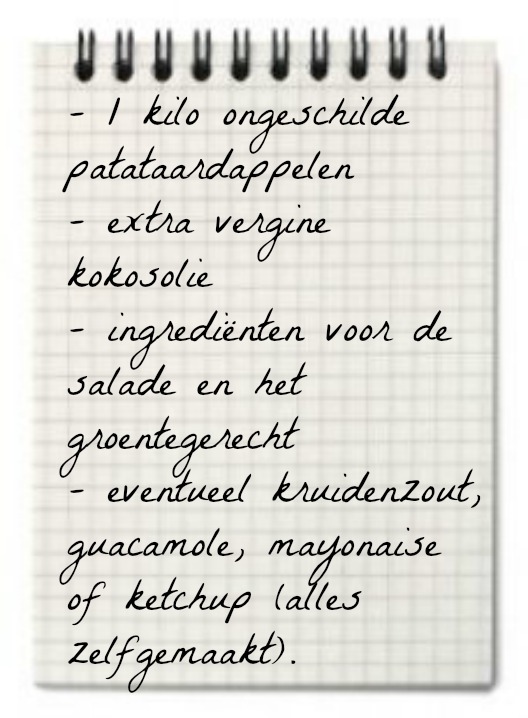 - 1 kilo ongeschilde
patataardappelen
- extra vergine
kokosolie
- ingrediënten voor de
salade en het
groentegerecht
- eventueel kruidenzout,
guacamole, mayonaise
of ketchup (alles
zelfgemaakt).